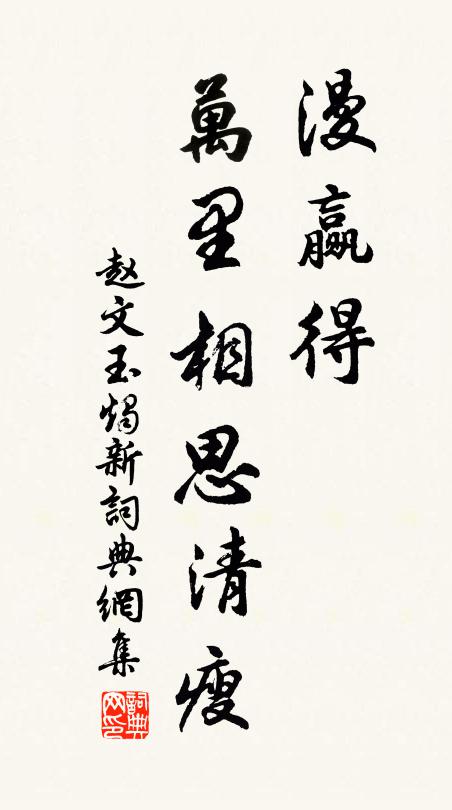 漫贏得
萬里相思清瘦
赵文玉燭新詞典網集
詞典网印